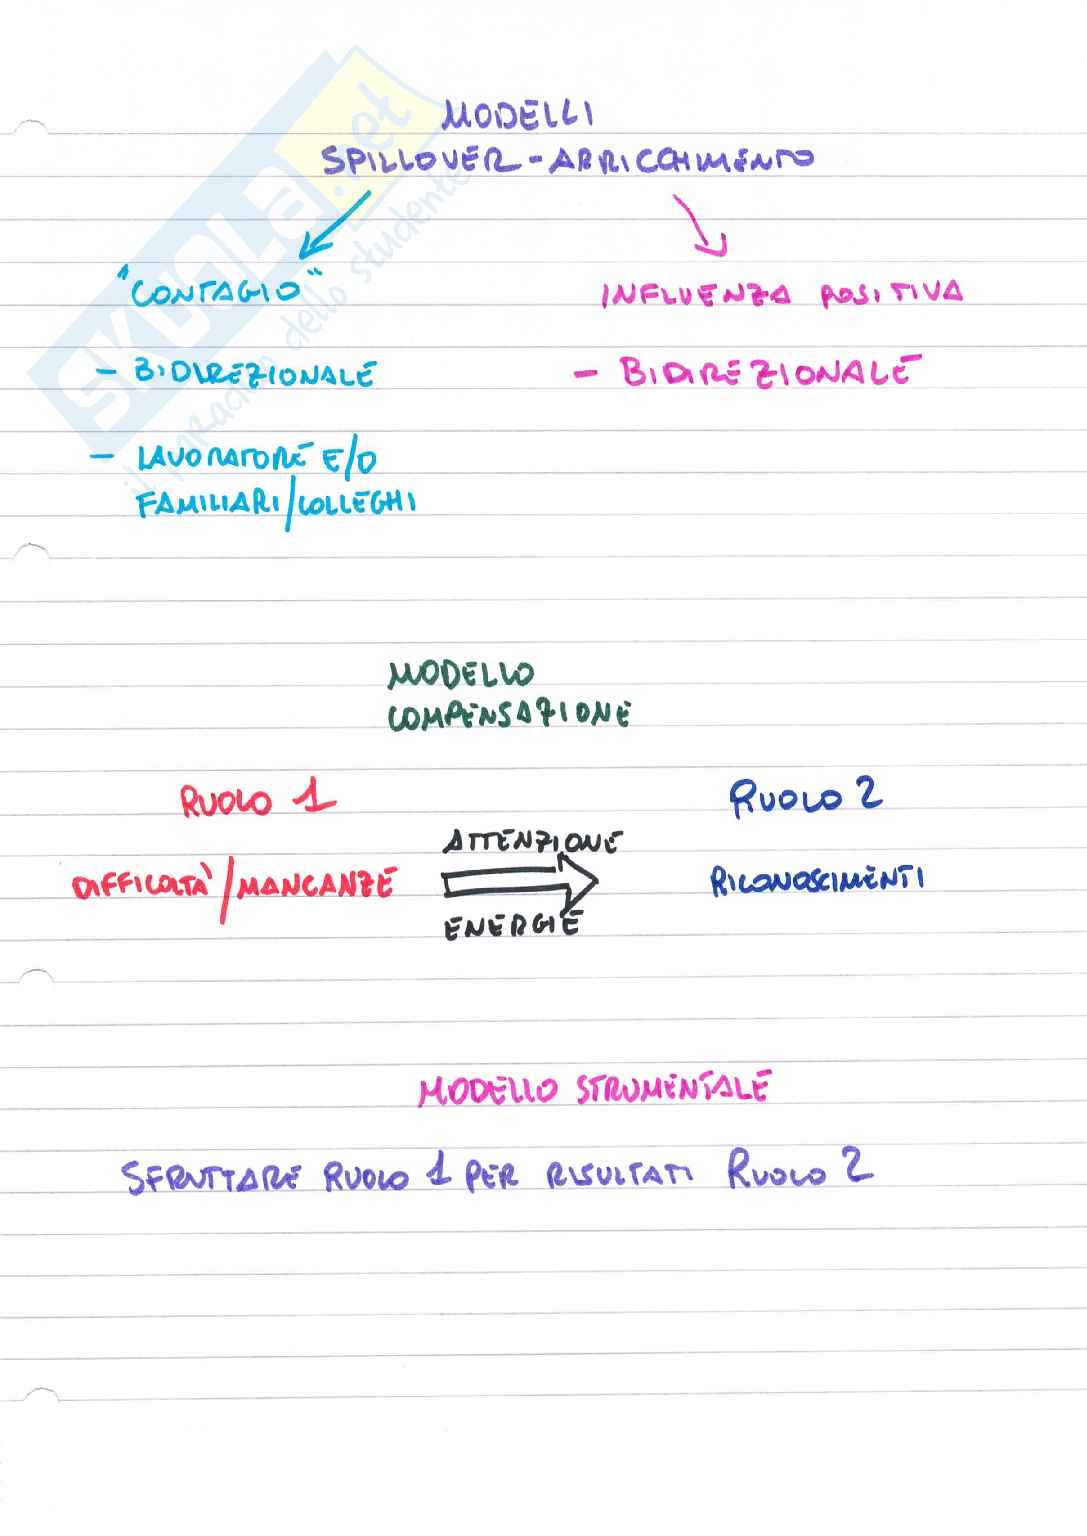 SKUOLA.net
il paradiso dello studente
MODELLI
SPILLOVER - ARRICCHIMENTO
"CONTAGIO"
INFLUENZA POSITIVA
- BIDIREZIONALE
- BIDIREZIONALE
- LAVORATORE E/O
FAMILIARI/COLLEGHI
MODELLO
COMPENSAZIONE
RUOLO 1
RUOLO 2
ATTENZIONE
DIFFICOLTÀ/MANCANZE
RICONOSCIMENTI
ENERGIE
MODELLO STRUMENTALE
SFRUTTARE RUOLO 1 PER RISULTATI RUOLO 2